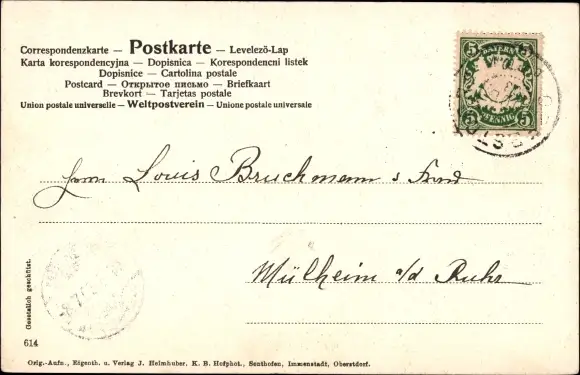 Correspondenzkarte — Postkarte — Levelező-Lap
Karta korespondencyjna — Dopisnica — Korespondencni listek
Dopisnice — Cartolina postale
Postcard — Открытое письмо — Briefkaart
Brevkort — Tarjetas postale
Union postale universelle — Weltpostverein — Unione postale universale
BAYERN
5 5
5 PFENNIG 5
Herrn Louis Bruchmann s
Mülheim a/d Ruhr
Gesetzlich geschützt.
614
Orig.-Aufn., Eigenth. u. Verlag J. Heimhuber, K. B. Hofphot., Sonthofen, Immenstadt, Oberstdorf.